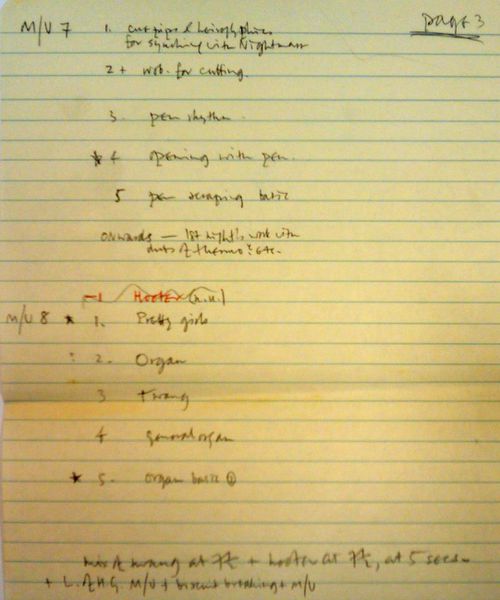 page 3
M/V 7 1. cut pips & heiroglyphics
for synching with Nightmare
2 + wob. for cutting.
3. pen rhythm.
* 4 opening with pen.
5 pen scraping basic
onwards — 1st night's work with
duts of thermo : etc.
-1 Hooter (n.u.)
M/V 8 * 1. Pretty girls
: 2. Organ
3 twang
4 general organ
* 5. organ basic ①
mix of twang at 7½ + hooter at 7½, at 5 secs.
+ L. of H.G. M/V + biscuit breaking + M/V